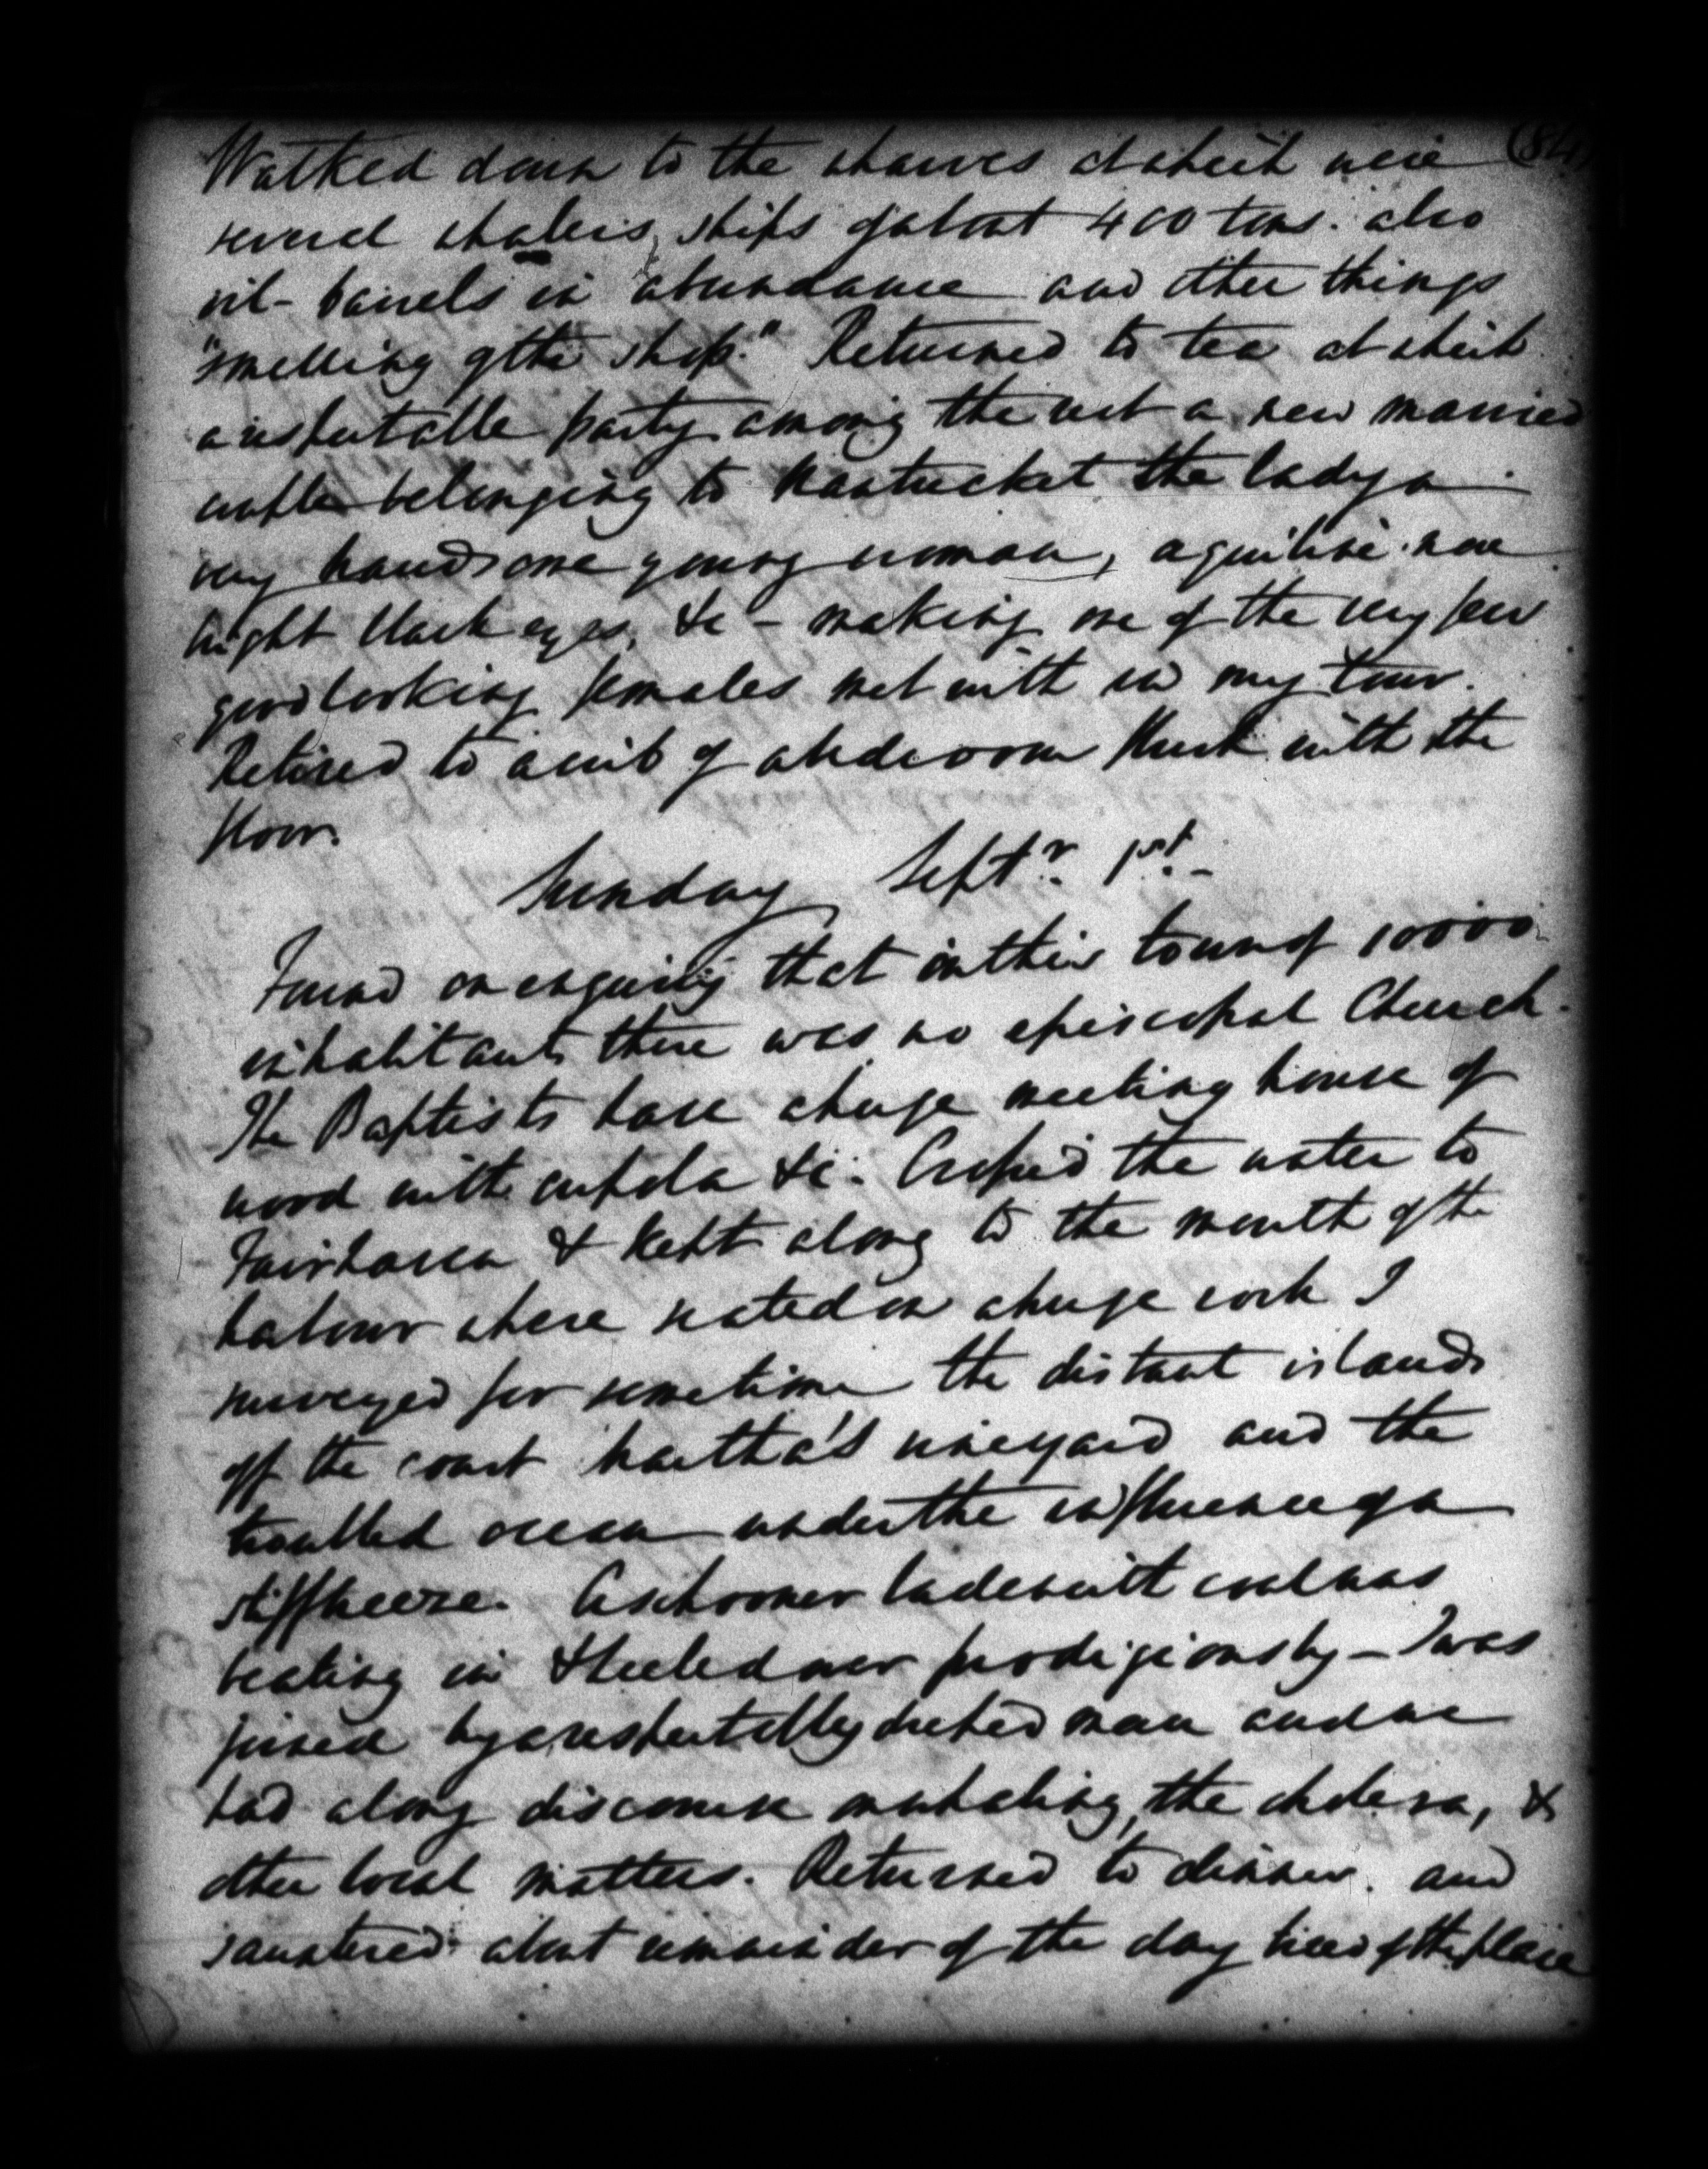 (84)
Walked down to the wharves at which were
several whalers, ships of about 400 tons. also
oil-barrels in abundance and other things
"smelling of the shop." Returned to tea at which
a respectable party among the rest a new married
couple belonging to Nantucket the lady a
very handsome young woman, aquiline nose
bright black eyes, &c - making one of the very few
good looking females met with in my tour.
Retired to a crib of a bedroom flush with the
floor.
Sunday Septr. 1st.
Found on enquiry that in this town of 10000
inhabitants there was no episcopal Church.
The Baptists have a huge meeting house of
wood with cupola &c. Crossed the water to
Fairhaven & kept along to the mouth of the
harbour where seated on a huge rock I
surveyed for sometime the distant islands
off the coast Martha's vineyard and the
troubled ocean under the influence of a
stiff breeze. A schooner laden with coal was
beating in & heeled over prodigiously - I was
joined by a respectably dressed man and we
had a long discourse on whaling, the cholera, &
other local matters. Returned to dinner. and
sauntered about remainder of the day tired of the place